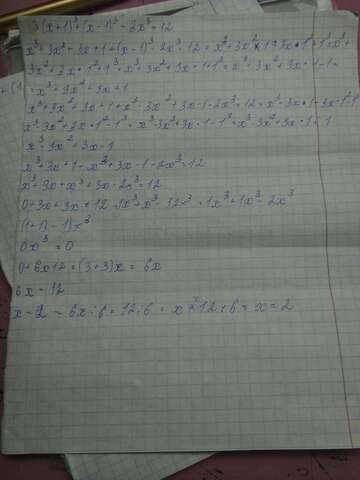 (x+1)³+(x-1)³-2x³=12
x³+3x²+3x+1+(x-1)³-2x³=12=x³+3x²x+3x·1²+1³=x³+
3x²+3x·1²+1³=x³+3x²+3x·1+1³=x³+3x²+3x·1-1=
=x³+3x²+3x+1
x³+3x²+3x+1+x³-3x²+3x-1-2x³=12=x³-3x·1-3x·1²-1³
x³-3x²+3x·1²-1³=x³-3x²+3x·1-1³=x³-3x²+3x·1-1
x³-3x²+3x-1
x³+3x+1+x³+3x-1-2x³=12
x³+3x+x³+3x-2x³=12
0+3x+3x=12=1x³+x³-12x³=1x³+1x³-2x³
(1+1)-1)x³
0x³=0
0+6x12=(3+3)x=6x
6x=12
x-2=6x:6=12:6=x=12÷6=x=2